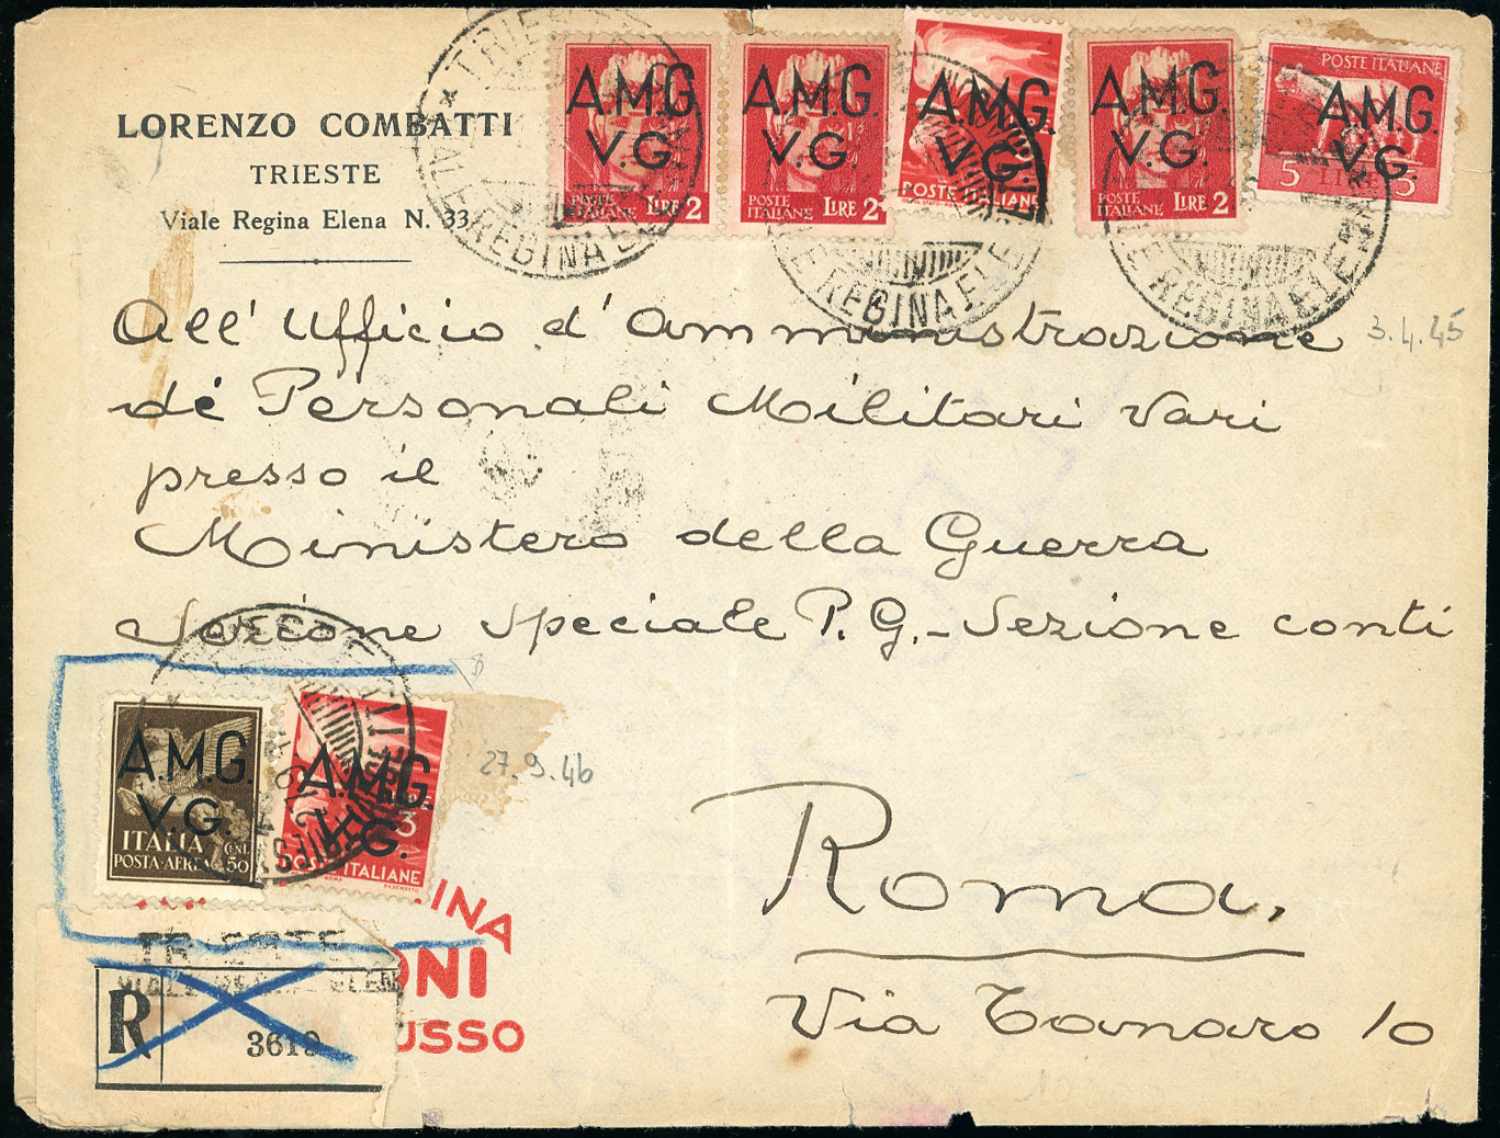 LORENZO COMBATTI
TRIESTE
Viale Regina Elena N. 33
TRIESTE
VIALE REGINA ELENA
A.M.G.
V.G.
POSTE ITALIANE LIRE 2
A.M.G.
V.G.
POSTE ITALIANE LIRE 2
A.M.G.
V.G.
POSTE ITALIANE
A.M.G.
V.G.
POSTE ITALIANE LIRE 2
POSTE ITALIANE
A.M.G.
V.G.
5 LIRE 5
REGINA ELE
E REGINA ELE
All' Ufficio d' Amministrazione
3.4.45
dé Personali Militari Vari
presso il
Ministero della Guerra
Sezione Speciale P.G. - Sezione conti
A.M.G.
V.G.
ITALIA
POSTA-AEREA CENT. 50
A.M.G.
V.G.
LIRE
3
POSTE ITALIANE
27.9.46
Roma,
Via Tanaro 10
INA
ONI
USSO
TRIESTE
R
3619